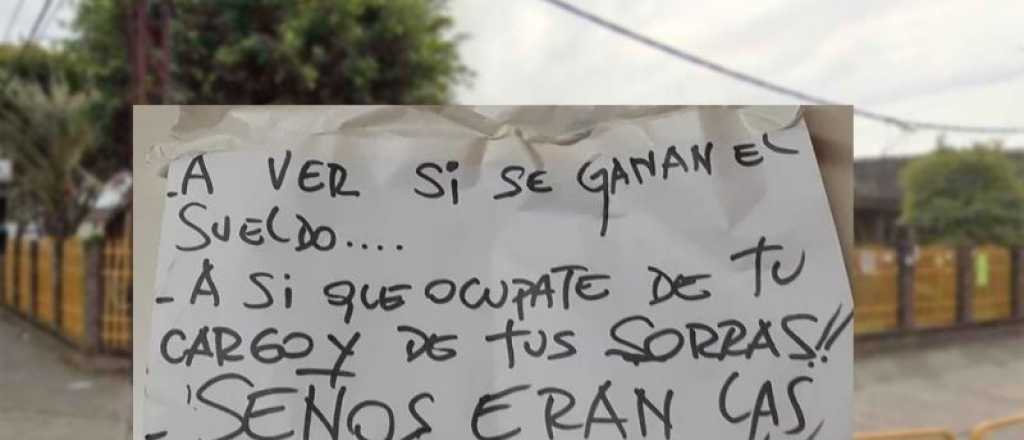 -A VER Si SE GANAN EL
SUELDO....
-A Si QUE OCUPATE DE TU
CARGO Y DE TUS SORRAS!!
-'SEÑOS ERAN LAS